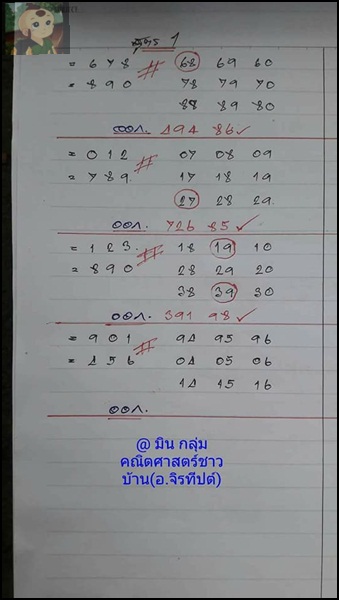 สูตร 1
= 6 7 8 # 68 69 60
= 8 9 0 78 79 70
88 89 80
ออก. 494 86 ✓
= 0 1 2 # 07 08 09
= 7 8 9 17 18 19
27 28 29
ออก. 726 85 ✓
= 1 2 3 # 18 19 10
= 8 9 0 28 29 20
38 39 30
ออก. 391 98 ✓
= 9 0 1 # 94 95 96
= 4 5 6 04 05 06
14 15 16
ออก.
@ มิน กลุ่ม
คณิตศาสตร์ชาว
บ้าน(อ.จิรทีปต์)